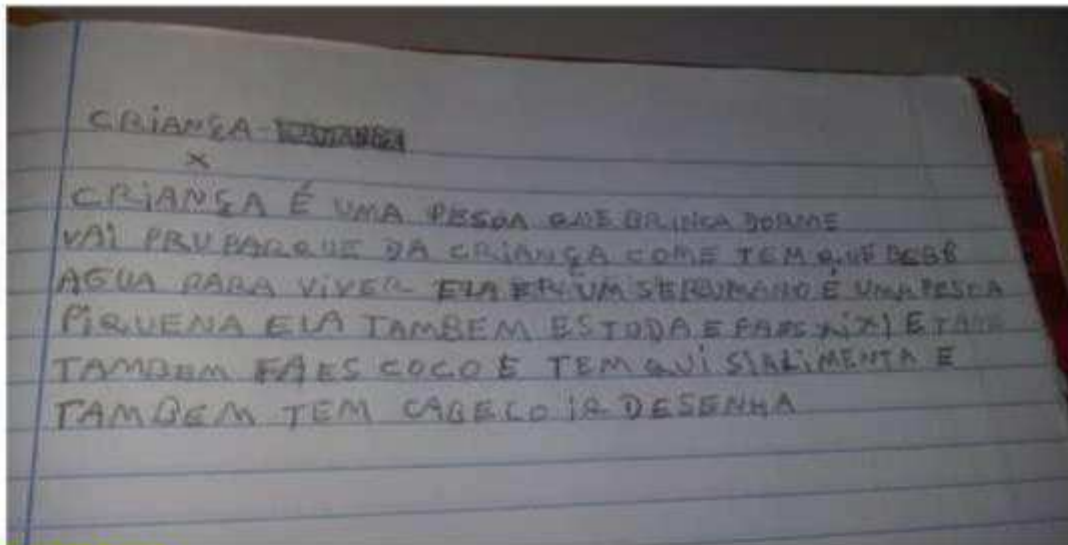 CRIANÇA
x
CRIANÇA É UMA PESOA QUE BRINCA DORME
VAI PRU PARQUE DA CRIANÇA COME TEM QUE BEBÊ
AGUA PARA VIVER ELA UM SERUMANO É UMA PESOA
PIQUENA ELA TAMBEM ESTODA E FAES XIXI E
TAMBEM FAES COCO E TEM QUI SIALIMENTA E
TAMBEM TEM CABELO DESENHA